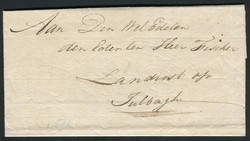 Aan Den WelEdelen
den Eerenten Heer Fischer
Landrost op
Tulbagh